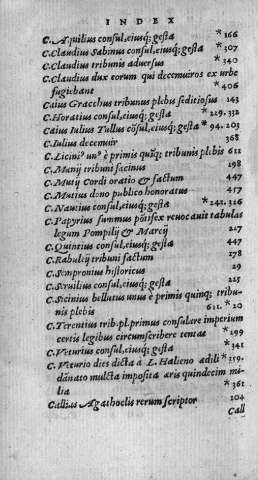 INDEX
C. Aquilius consul, eiusq; gesta * 166
C. Claudius Sabinus consul, eiusq; gesta * 307
C. Claudius tribunis aduersus * 340
C. Claudius dux eorum qui decemuiros ex urbe
fugiebant * 406
Caius Gracchus tribunus plebis seditiosus 143
C. Horatius consul, eiusq; gesta 229. 332
Caius Iulius Tullus cōsul, eiusq; gesta * 94. 203
C. Iulius decemuir 368
C. Licini⁹ un⁹ è primis quīq; tribunis plebis 611
C. Manij tribuni facinus 198
C. Mutij Cordi oratio & factum 447
C. Mutius dono publico honoratus 457
C. Nautius consul, eiusq; gesta * 241. 316
C. Papyrius summus pōtifex reuocauit tabulas
legum Pompilij & Marcij 217
C. Quintius consul, eiusq; gesta 447
C. Rabuleij tribuni factum 278
C. Sempronius historicus 29
C. Seruilius consul, eiusq; gesta 225
C. Sicinius bellutus unus è primis quinq; tribu-
nis plebis 611. * 20
C. Terentius trib. pl. primus consulare imperium
certis legibus circumscribere tentat * 299
C. Veturius consul, eiusq; gesta * 341
C. Veturio dies dicta à L. Halieno ædili * 359.
dānato mulcta imposita æris quindecim mi-
lia * 361
Callias Agathoclis rerum scriptor 104
Call